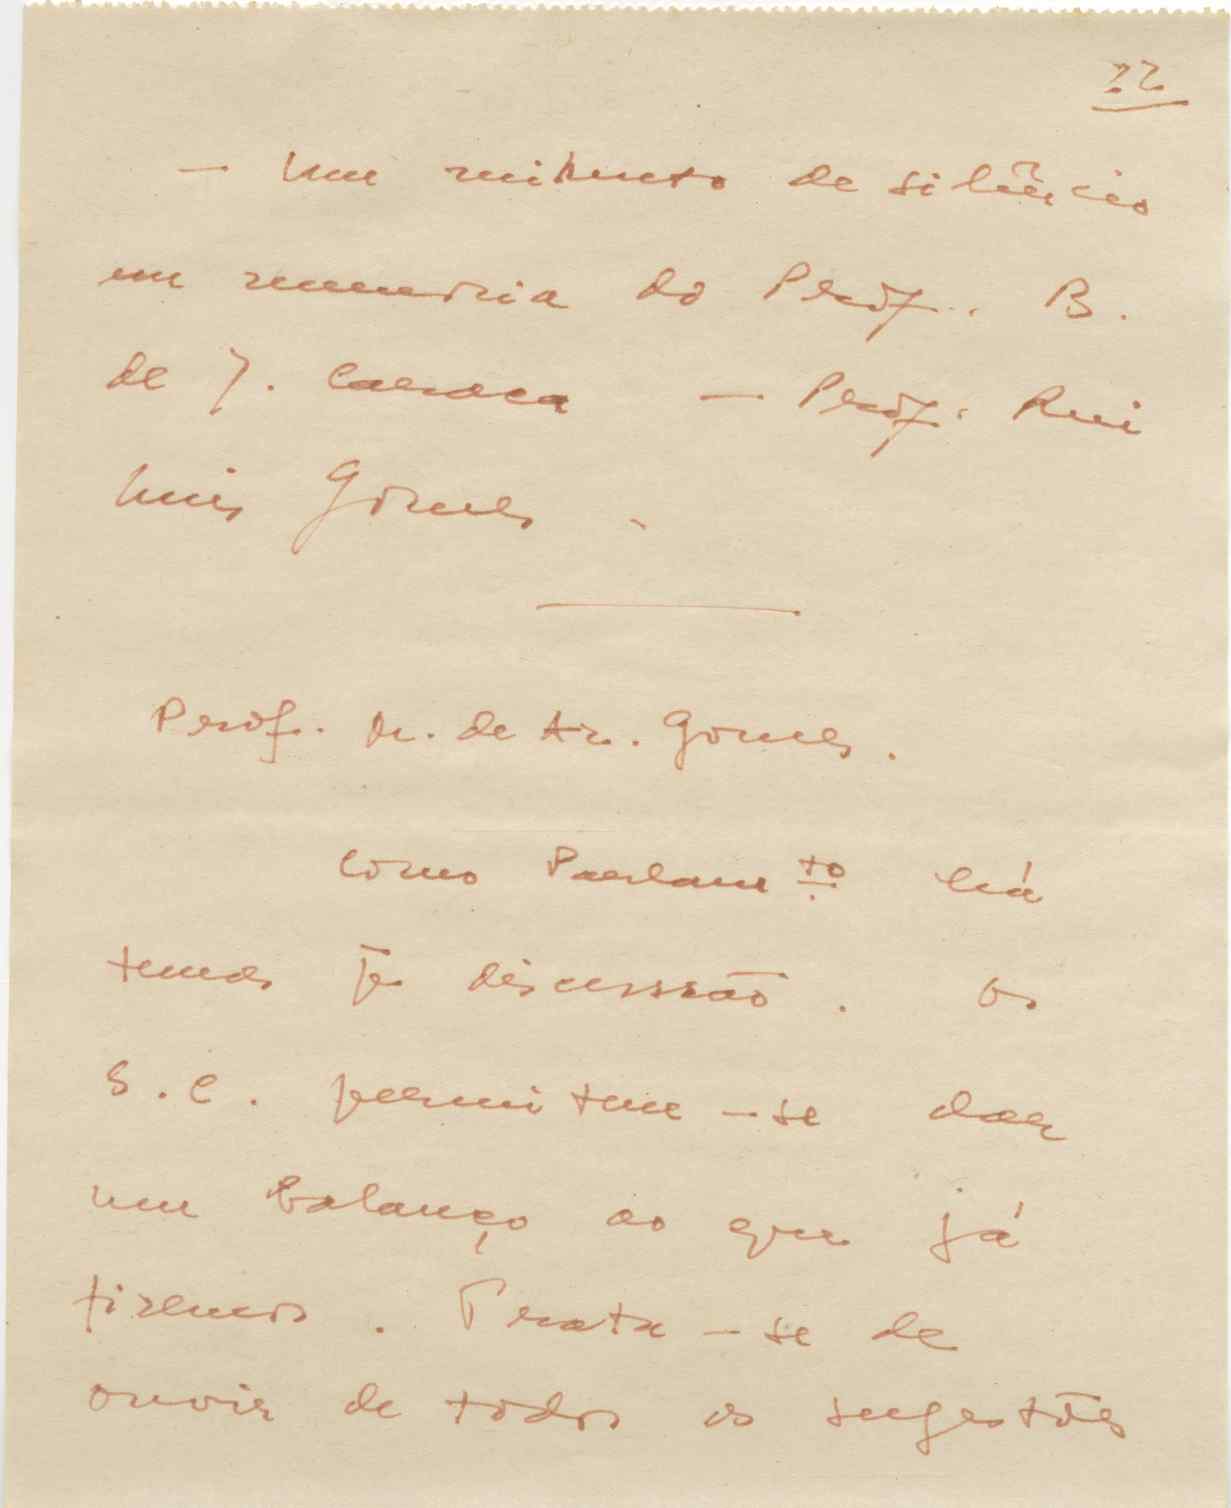 22
— Um minuto de silêncio
em memoria do Prof. B.
de J. Caraça — Prof. Rui
Luis Gomes.
Prof. R. de Az. Gomes.
Como Parlamto há
temas p. discussão. Os
S. C. permitem-se dar
um balanço ao que já
fizemos. Trata-se de
ouvir de todos as sugestões